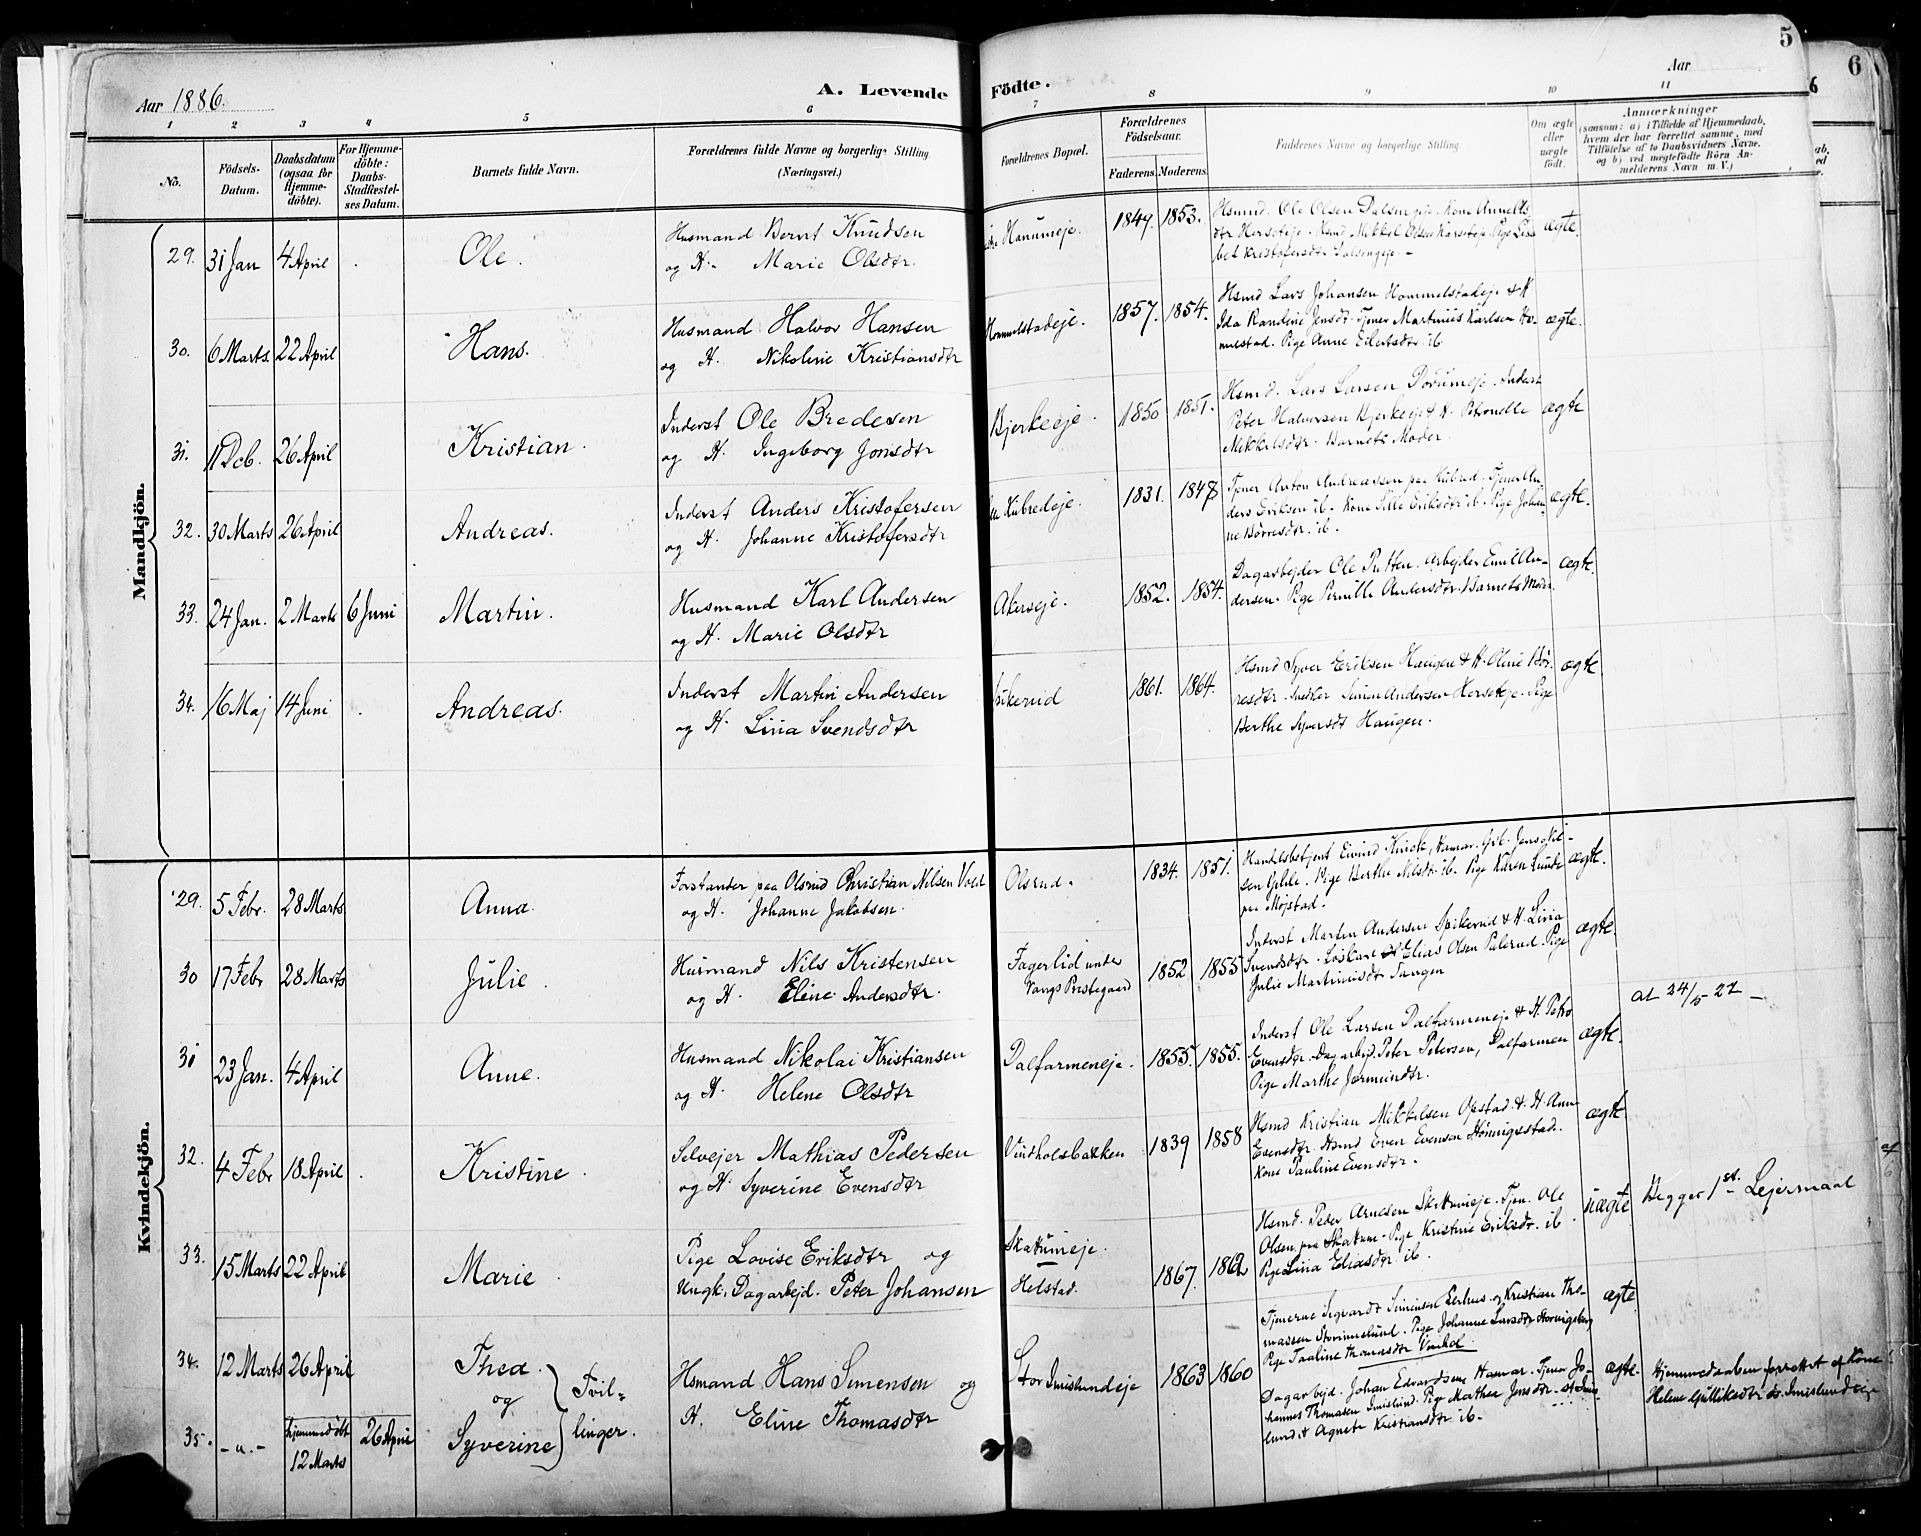 Aar 1886.
A. Levende
Födte.
Aar
5
6
1 2 3 4 5 6 7 8 9 10 11
No.
Födsels-
Datum.
Daabsdatum
(ogsaa for
Hjemme-
döbte).
For Hjemme-
döbte:
Daabs-
Stadfæstel-
ses Datum.
Barnets fulde Navn.
Forældrenes fulde Navne og borgerlige Stilling
(Næringsvei.)
Forældrenes Bopæl.
Forældrenes
Födselsaar.
Faderens. Moderens.
Faddernes Navne og borgerlige Stilling.
Om ægte
eller
uægte
födt.
Anmærkninger
(saasom: a) i Tilfælde af Hjemmedaab,
hvem der har forrettet samme, med
Tilföielse af to Daabsvidners Navne.
og b) ved uægtefödte Börn An-
melderens Navn m. V.)
Mandkjön.
29. 31 Jan 4 April Ole. Husmand Bernt Knudsen
og H. Marie Olsdtr.
Hanumeje. 1849. 1853. Hsmd. Ole Olsen Dalsengeje. Kone
bet Kristofersdtr Dalsengeje.
ægte.
30. 6 Marts 22 April Hans. Husmand Halvor Hansen
og H. Nikoline Kristiansdtr
Hommelstadeje. 1857. 1854. Hsmd Lars Johansen Hommelstadeje & H
Ida Randine Jensdt. Tjener Martinius Karlsen Ho-
melstad. Pige Anne Eilertsdtr. ib
ægte.
31. 11 Dcb. 26 April Kristian. Inderst Ole Bredesen
og H. Ingeborg Jonsdtr
Bjerkeeje. 1850 1851. Hsmd. Lars Larsen Dörumeje. Inderst
Peter Halvorsen Bjerkeeje & H. Petronelle
Mikkelsdtr. Barnets Moder.
ægte
32. 30 Marts 26 April Andreas. Inderst Anders Kristofersen
og H. Johanne Kristofersdtr
Kubredeje. 1831. 1848 Tjener Anton Andreassen paa Kubred. Tjener An-
ders Eriksen ib. Kone Sille Eriksdtr ib. Pige Johan-
ne Börresdtr. ib.
ægte.
33. 24 Jan. 2 Marts 6 Juni Martin. Husmand Karl Andersen
og H. Marie Olsdtr
Akerseje. 1852. 1854. Dagarbejder Ole Putten. Arbejder Emil An-
dersen. Pige Pernille Andersdtr. Barnets Moder.
ægte.
34. 16 Maj 14 Juni Andreas. Inderst Martin Andersen
og H. Lina Svendsdtr
Spikerud 1861. 1864. Hsmd Syver Eriksen Haugen & H. Oline Bör-
resdtr. Snedker Simen Andersen Herseteje. Pige
Berthe Syversdt Haugen.
ægte
Kvindekjön.
29. 5 Febr. 28 Marts Anna. Forstander paa Olsrud Christian Nilsen Vold
og H. Johanne Jakobsen.
Olsrud. 1834. 1851. Handelsbetjent Eivind Hamar. Gbr. Jens Nil-
sen Pige Berthe Nilsdtr ib. Pige Karen Lunde
paa Mojstad.
ægte.
30 17 Febr 28 Marts Julie. Husmand Nils Kristensen
og H. Eline Andersdtr.
Fagerlid under
Vangs Prestegaard
1852 1855 Inderst Martin Andersen Spikerud & H. Lina
Svendsdtr. Löskarl Elias Olsen Palerud. Pige
Julie Martiniusdtr Tangen
ægte.
at 24/5-27 -
31 23 Jan. 4 April Anne. Husmand Nikolai Kristiansen
og H. Helene Olsdtr
Dalfarmeneje. 1855. 1855. Inderst Ole Larsen Dalfarmeneje & H. Petro
Evensdtr. Dagarbejd. Peter Petersen, Dalfarmen
Pige Marthe Jörmundtr.
ægte.
32. 4 Febr 18 April Kristine Selvejer Mathias Pedersen
og H. Syverine Evensdtr
Vindholsbakken 1839 1858 Hsmd Kristian Mikkelsen Opstad & H. Anne
Evensdtr. Hsmd Even Evensen Hönnigsstad.
Kone Pauline Evensdtr.
ægte
33. 15 Marts 22 April Marie Pige Lovise Eriksdtr og
Ungk. Dagarbejd. Peter Johansen
Skatumeje.
Helstad.
1867. 1862 Hsmd. Peder Arnesen Skatumeje. Tjen. Ole
Olsen paa Skatum. Pige Kristine Eriksdtr. ib
Pige Lina Eliasdtr ib.
uægte Begges 1st. Lejermaal
34. 12 Marts 26 April Thea.
og
35. -"- hjemmedöbt
12 Marts
26 April Syverine
Tvil-
linger.
Hsmand Hans Simensen og
H. Eline Thomasdtr
Stor Imislundeje 1863 1860 Tjenerne Sigvardt Simensen og Kristian Tho-
massen Storimislund. Pige Johanne Larsdtr
Pige Pauline Thomasdtr
ægte
Dagarbejd. Johan Edvardsen Hamar. Tjener Jo-
hannes Thomasen Imislund. Pige Mathea Jonsdtr. st Imis
lund & Agnete Kristiansdtr ib.
ægte. Hjemmedaaben forrettet af Kone
Helene Gulliksdtr st. Imislundeje